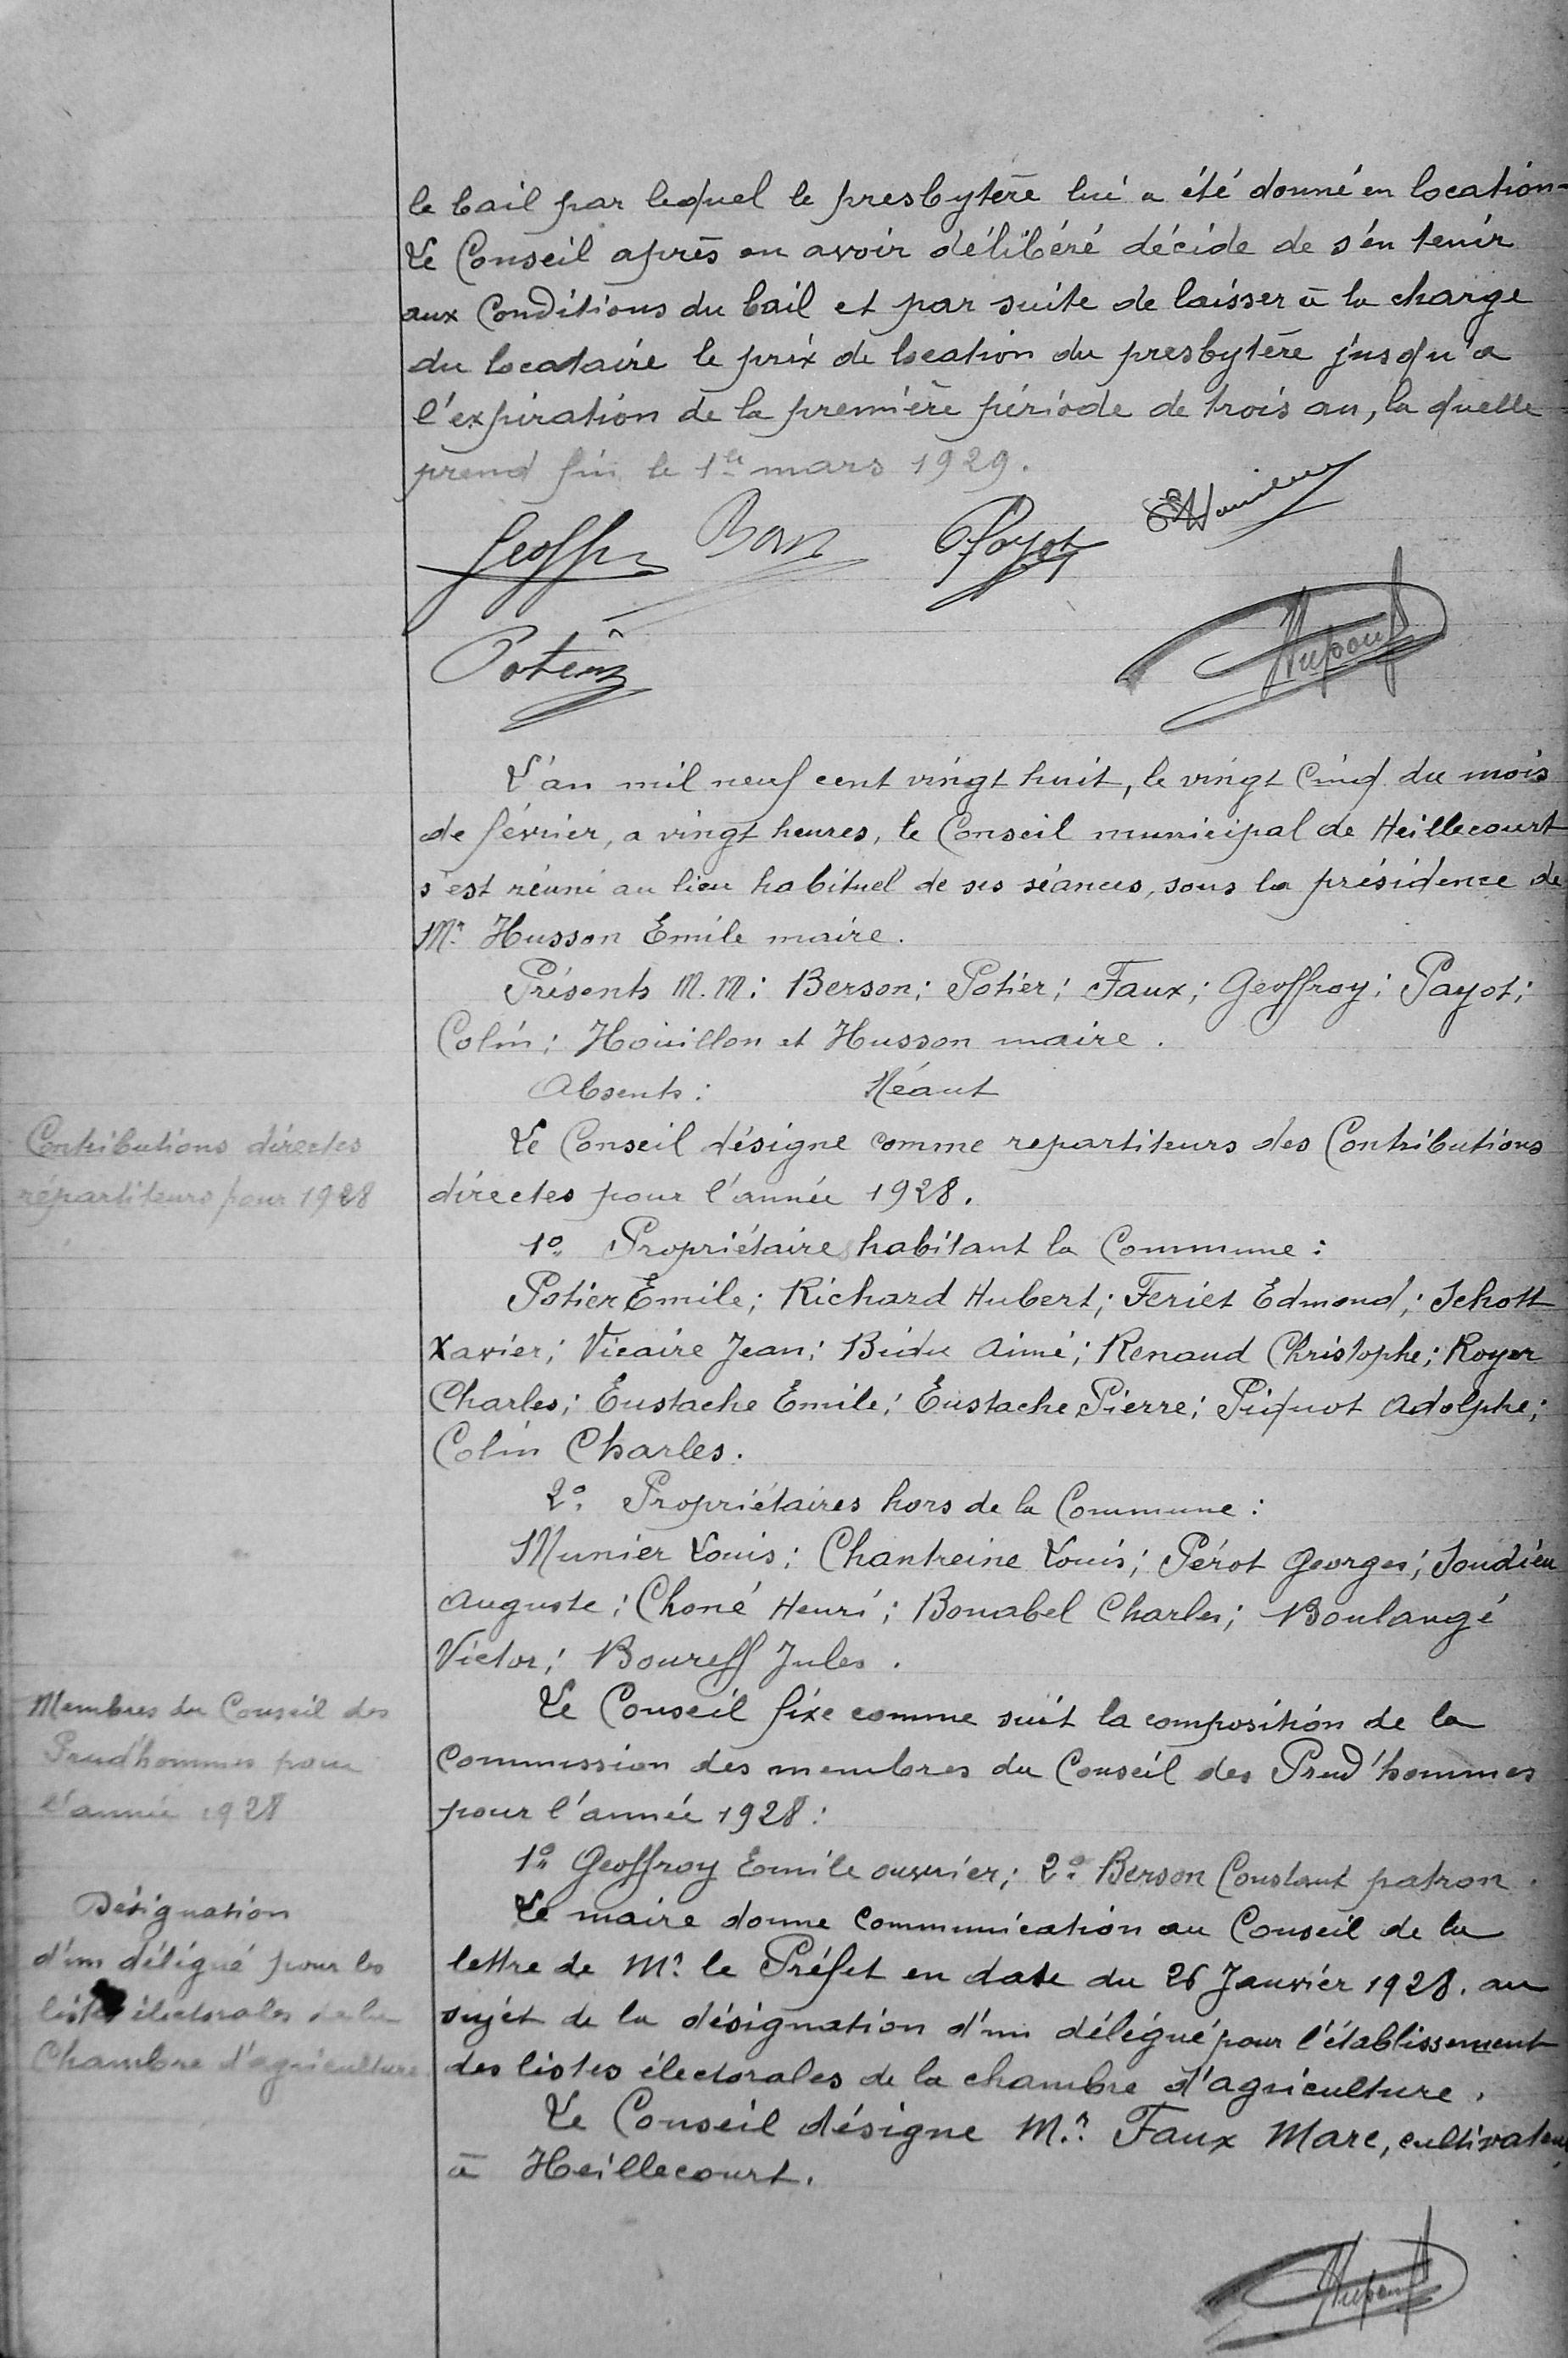 le bail par lequel le presbytère lui a été donné en location-
Le Conseil après en avoir délibéré décide de s'en tenir
aux Conditions du bail et par suite de laisser à la charge
du locataire le prix de location du presbytère jusqu'a
l'expiration de la première période de trois an, la quelle
prend fin le 1er mars 1929.
Geoffr Payot
L'an mil neuf cent vingt huit, le vingt Cinq du mois
de février, a vingt heures, le Conseil municipal de Heillecourt
s'est réuni au lieu habituel de ses séances, sous la présidence de
Mr. Husson Emile maire.
Présents M.M: Berson; Potier; Faux; Geoffroy; Payot;
Colin; Houillon et Husson maire.
Absents: Néant
Contributions directes
répartiteurs pour 1928
Le Conseil désigne comme repartiteurs des Contributions
directes pour l'année 1928.
1o. Propriétaires habitant la Commune:
Potier Emile; Richard Hubert; Feriet Edmond; Schott
Xavier; Vicaire Jean; Bidu Aimé; Renaud Christophe; Royer
Charles; Eustache Emile; Eustache Pierre; Piquot Adolphe;
Colin Charles.
2o. Propriétaires hors de la Commune:
Munier Louis; Chantreine Louis; Pérot Georges;
Auguste; Choné Henri; Bonabel Charles; Boulangé
Victor; Boureff Jules.
Membres du Conseil des
Prud'hommes pour
l'année 1928
Le Conseil fixe comme suit la composition de la
commission des membres du Conseil des Prud'hommes
pour l'année 1928:
1o. Geoffroy Emile ouvrier; 2o. Berson Constant patron.
Désignation
d'un délégué pour les
listes électorales de la
Chambre d'agriculture
Le maire donne communication au Conseil de la
lettre de Mr. le Préfet en date du 26 Janvier 1928. au
sujet de la désignation d'un délégué pour l'établissement
des listes électorales de la chambre d'agriculture.
Le Conseil désigne Mr. Faux Marc, cultivateur
à Heillecourt.